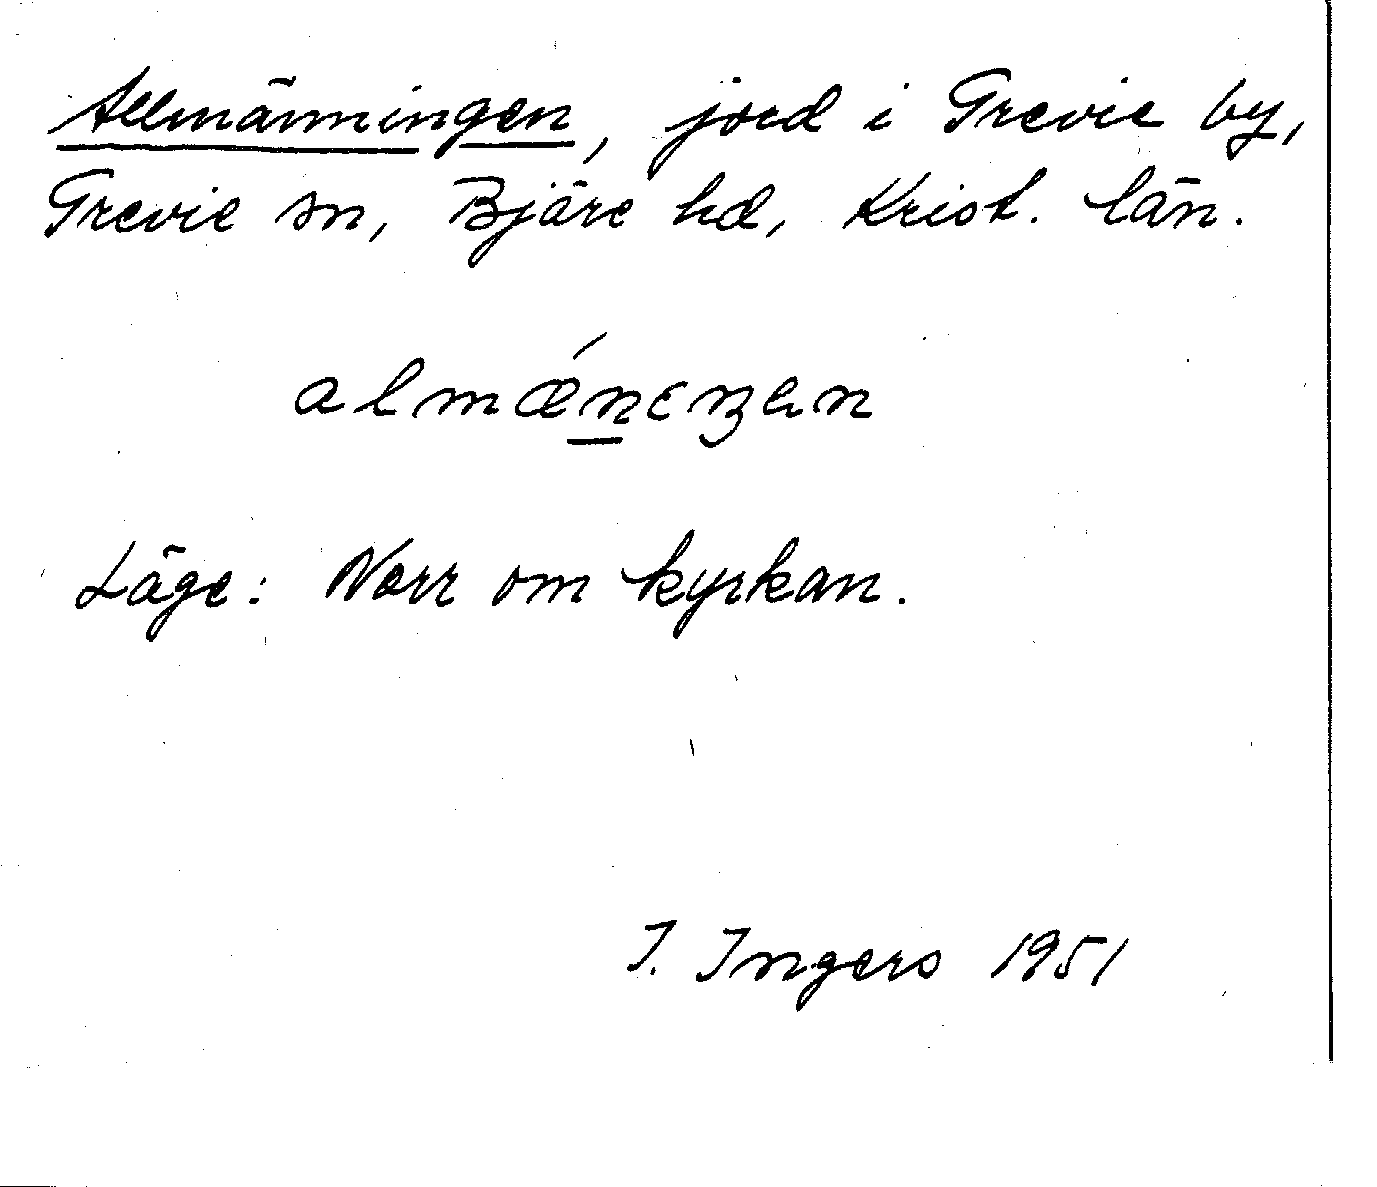 Allmänningen, jord i Grevie by,
Grevie sn, Bjäre hd, Krist. län.
almǽnɛŋən
Läge: Norr om kyrkan.
I. Ingers 1951